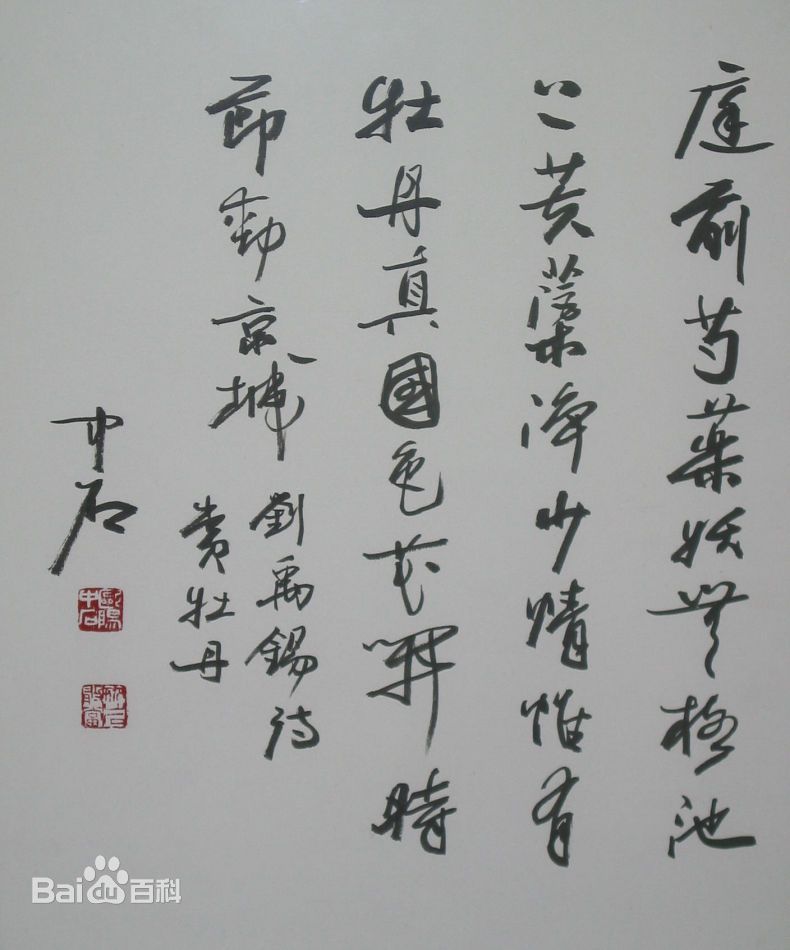 庭前芍藥妖無格池
上芙蕖淨少情惟有
牡丹真國色花開時
節動京城
劉禹錫詩
賞牡丹
中石
歐陽中石
Bai du 百科